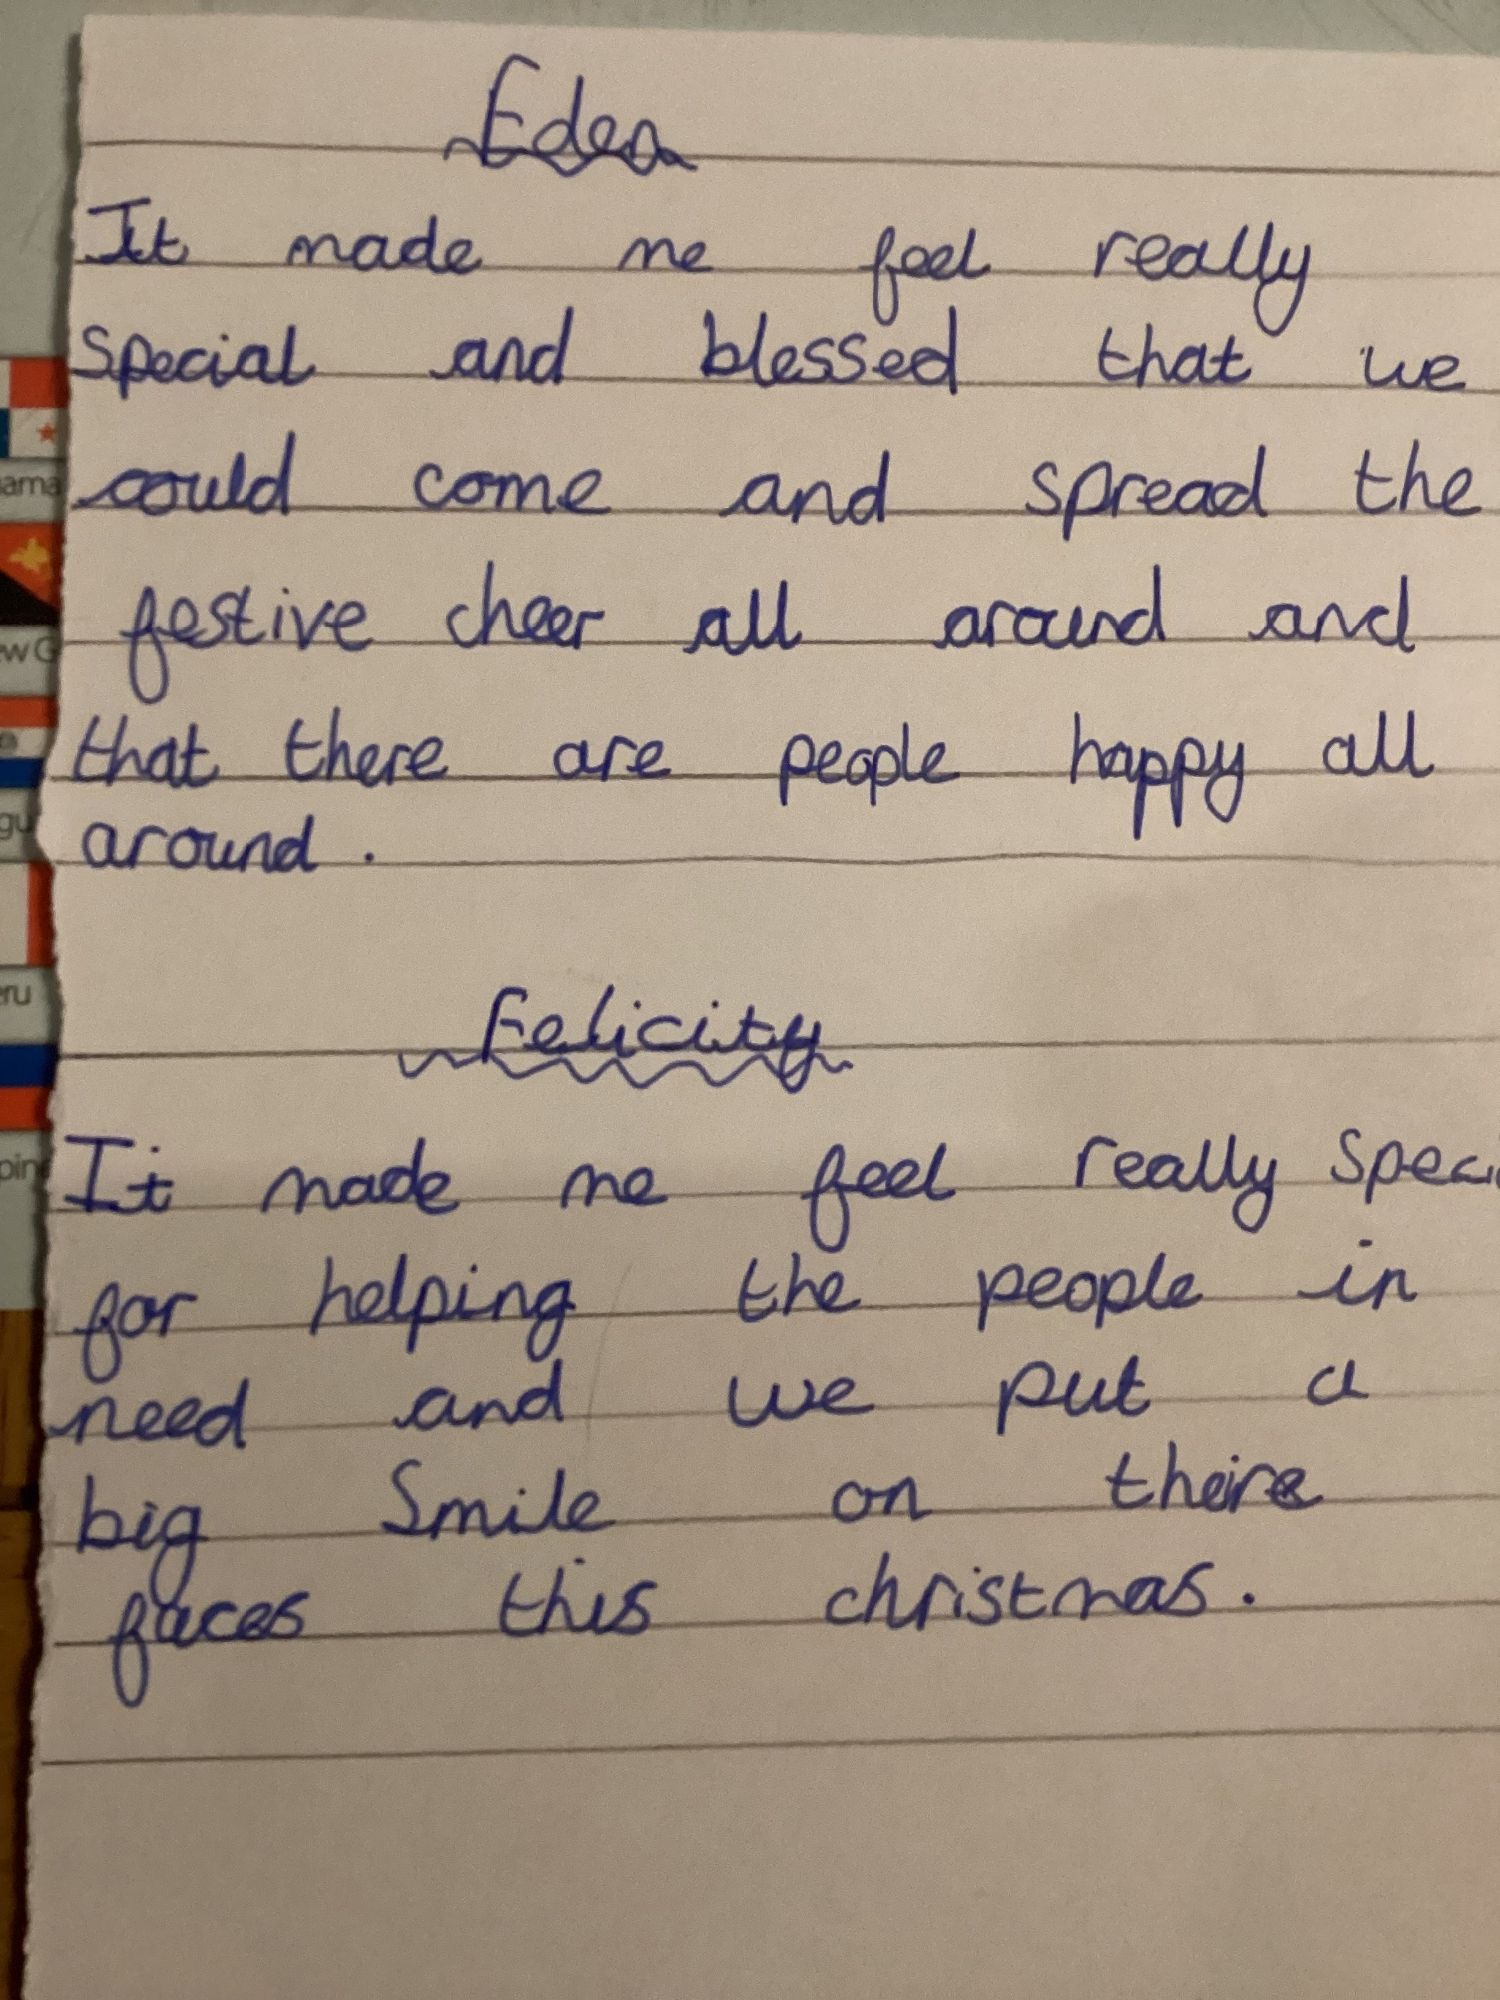 Eden
It made me feel really
special and blessed that we
could come and spread the
festive cheer all around and
that there are people happy all
around.
Felicity
It made me feel really Speci
for helping the people in
need and we put a
big Smile on theire
faces this christmas.
ama
ew G
gu
eru
pin